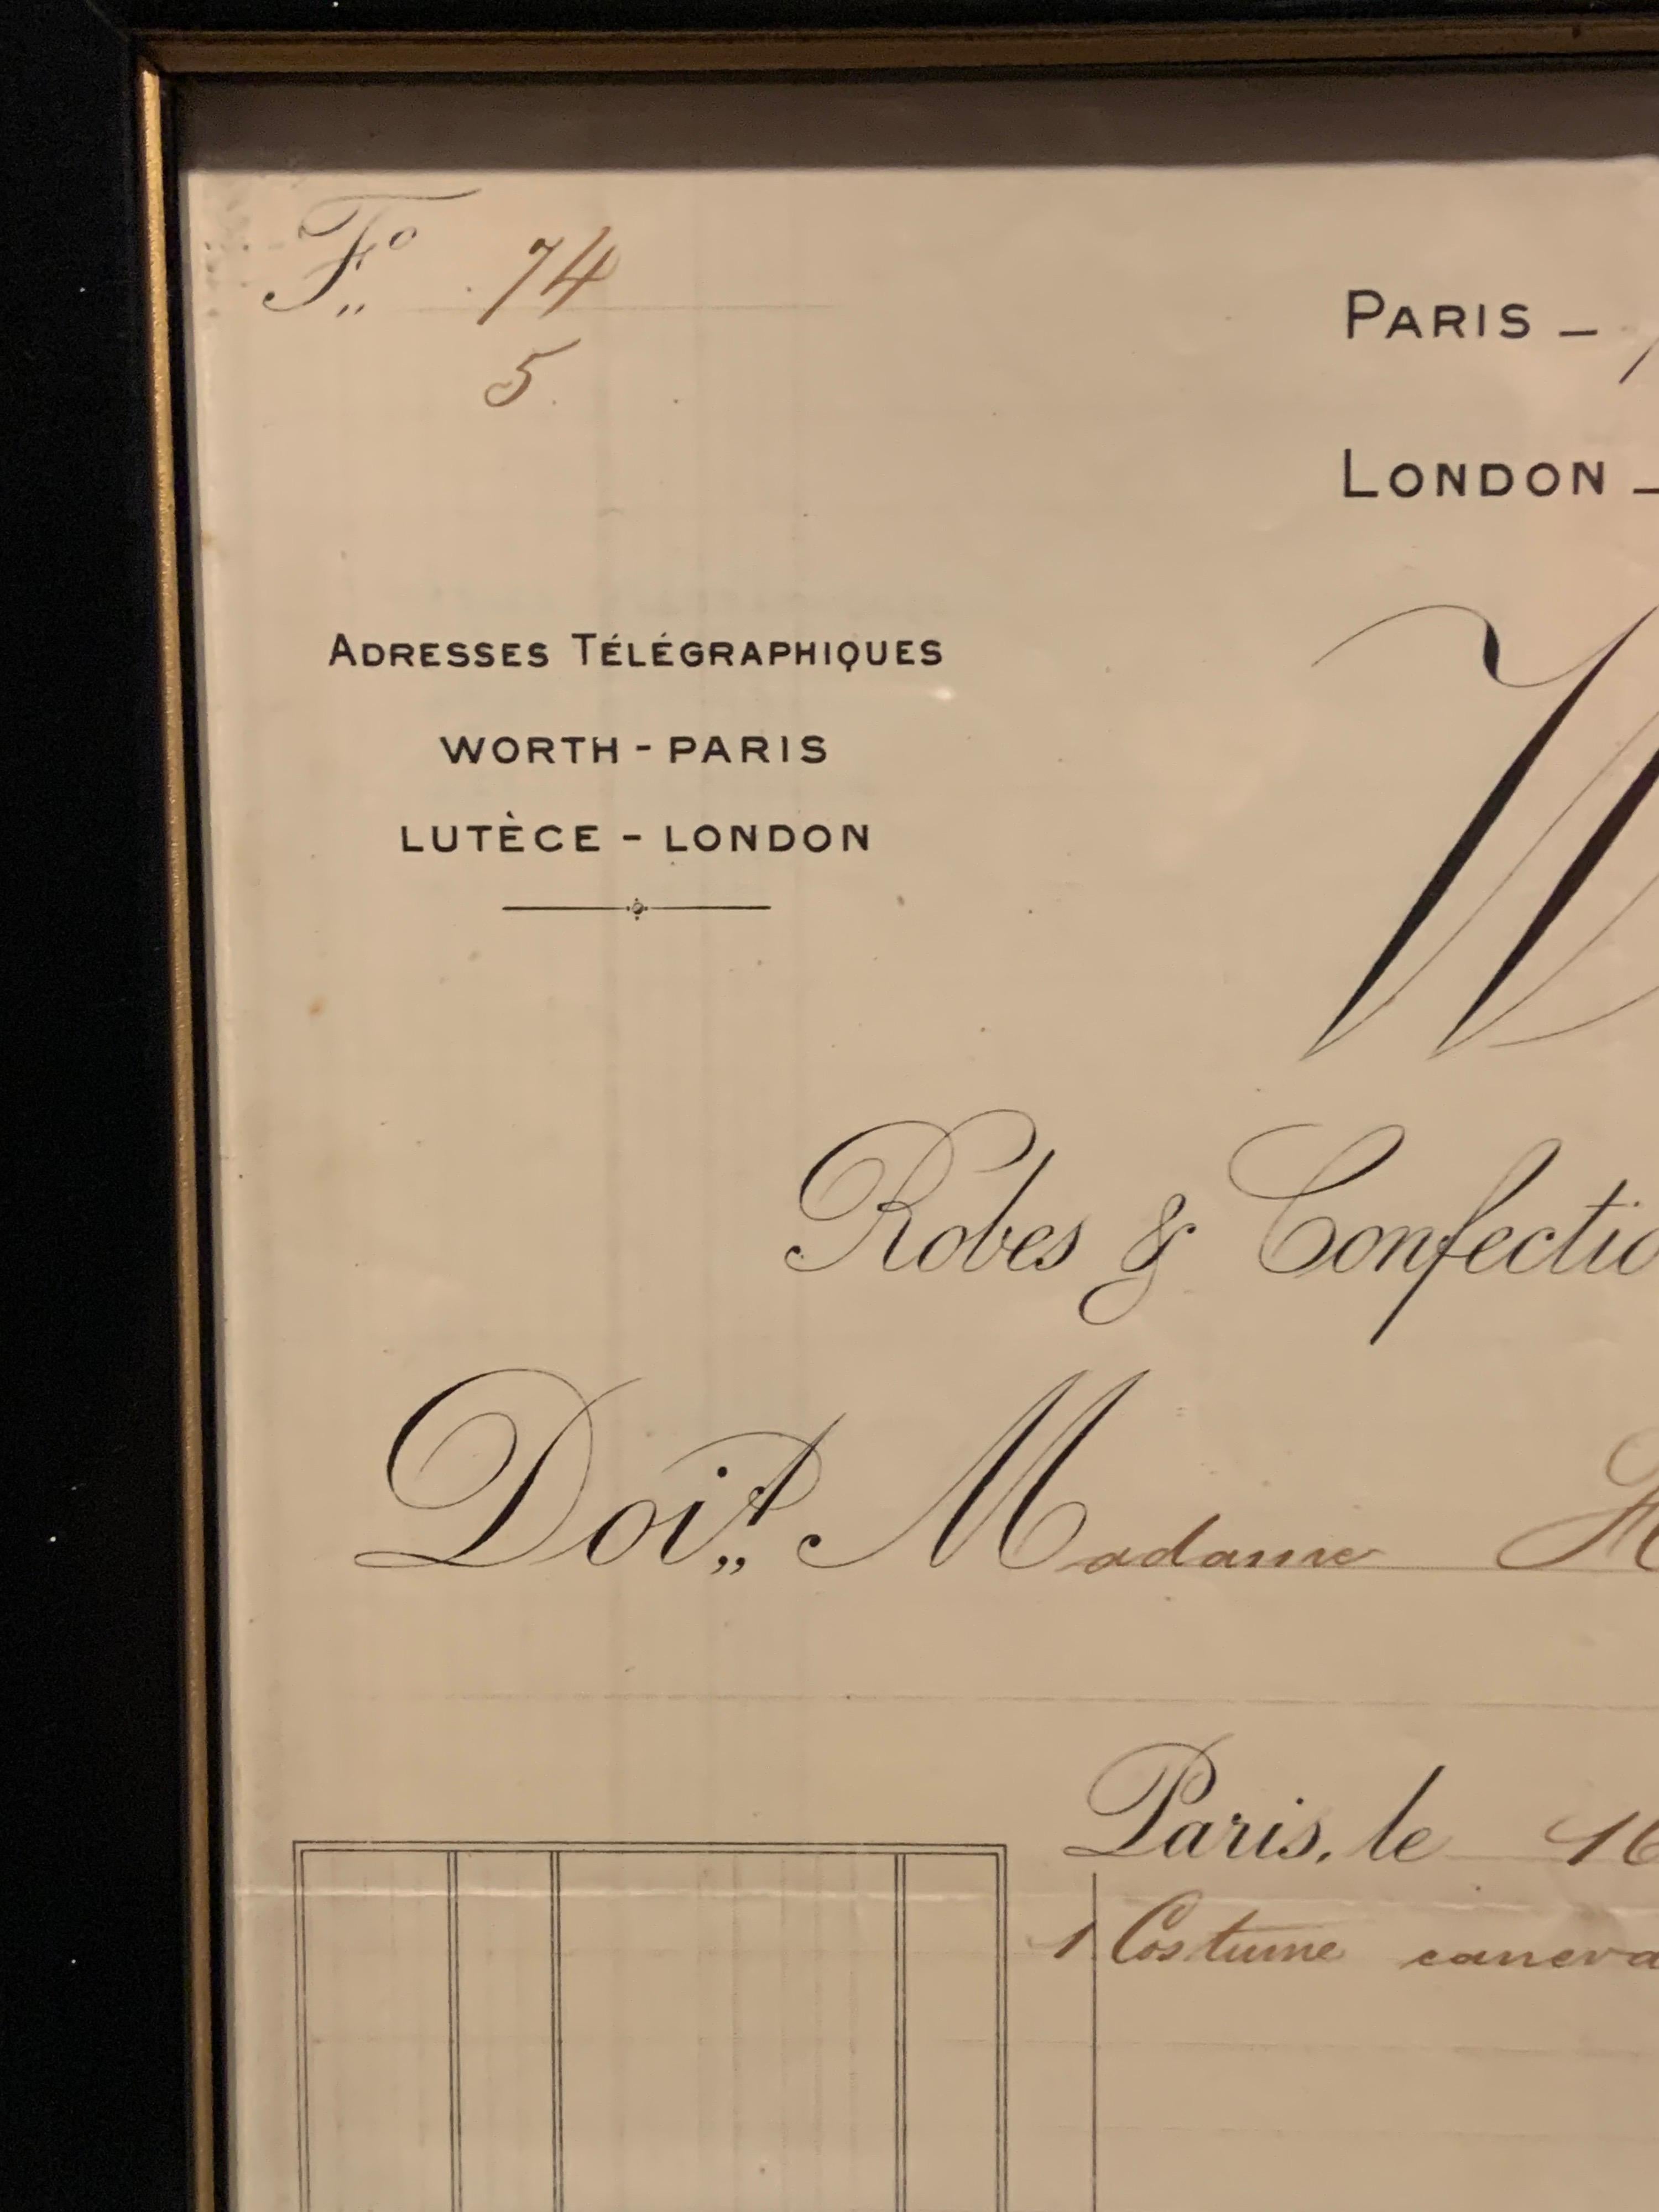 Fo 74
5
PARIS –
LONDON –
ADRESSES TÉLÉGRAPHIQUES
WORTH - PARIS
LUTÈCE - LONDON
W
Robes & Confectio
Doit Madame H
Paris, le 16
1 Costume caneva